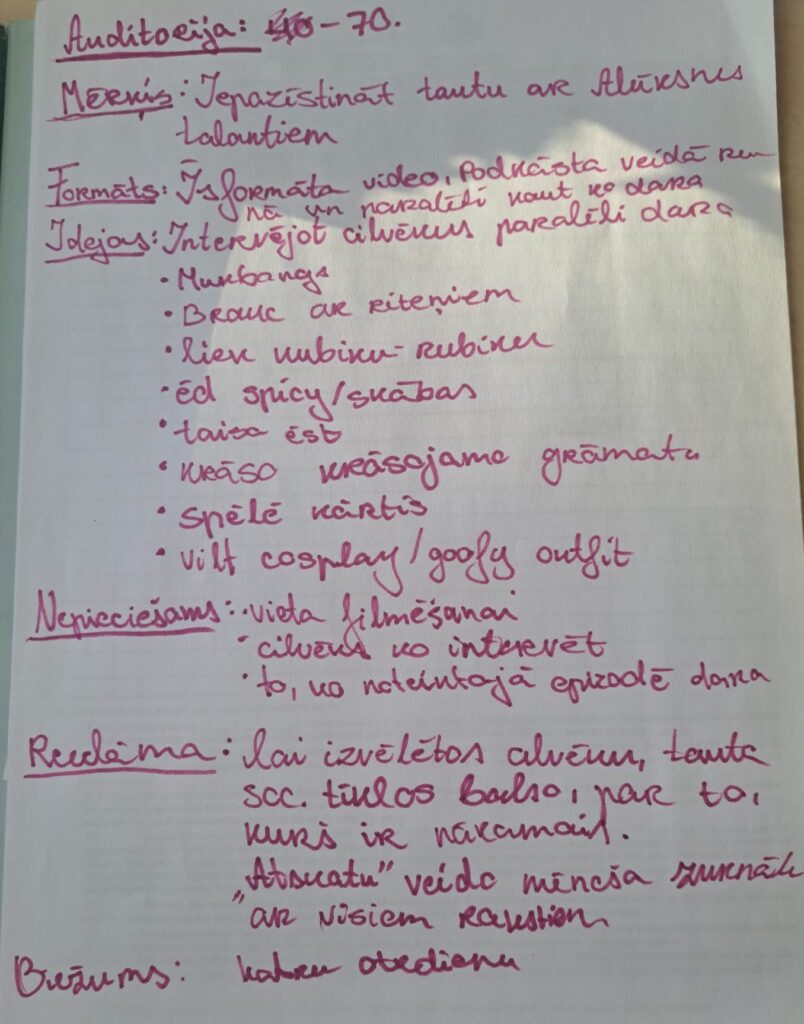 Auditorija: – 70.
Mērķis: Iepazīstināt tautu ar Alūksnes
talantiem
Formāts: Īsformāta video, Podkāsta veidā run
nā un paralēli kaut ko dara
Idejas: Intervējot cilvēkus paralēli dara
• Mukbangs
• Brauc ar riteņiem
• liek kubiku-rubiku
• ēd spicy/skābas
• taisa ēst
• krāso krāsojamo grāmatu
• spēlē kārtis
• vilt cosplay/goofy outfit
Nepieciešams: • vieta filmēšanai
• cilvēks ko intervēt
• to, ko noteiktajā epizodē dara
Reklāma: lai izvēlētos cilvēkus, tauta
soc. tīklos balso, par to,
kurš ir nākamais.
„Atskatu” veido mēneša žurnāls
ar visiem rakstiem
Biežums: katru otrdienu